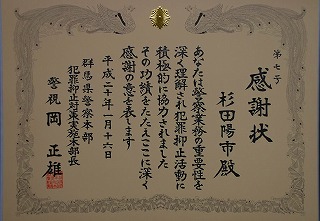 第七号
感謝状
杉田陽市殿
あなたは警察業務の重要性を
深く理解され犯罪抑止活動に
積極的に協力されました
その功績をたたえここに深く
感謝の意を表します
平成二十年一月十六日
群馬県警察本部
犯罪抑止対策実施本部長
警視 岡正雄